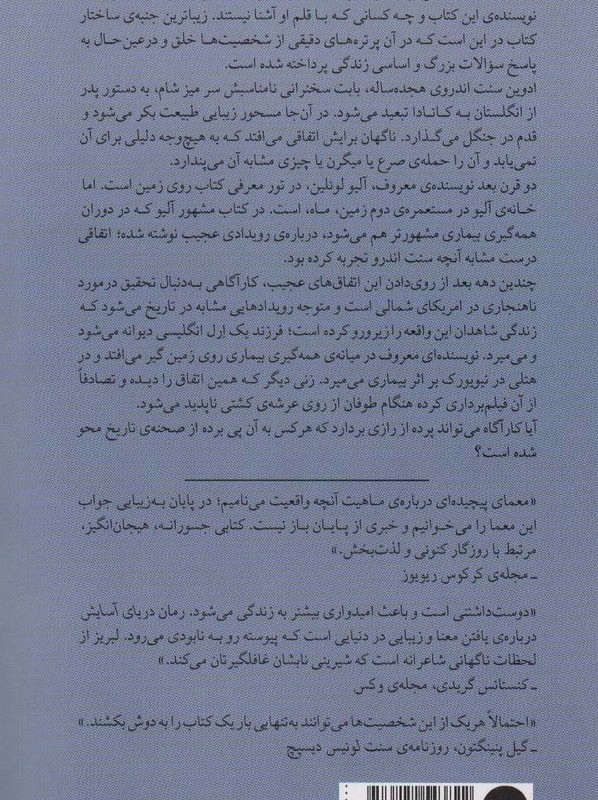 نویسنده‌ی این کتاب و چه کسانی که با قلم او آشنا نیستند. زیباترین جنبه‌ی ساختار
کتاب در این است که در آن پرتره‌های دقیقی از شخصیت‌ها خلق و درعین‌حال به
پاسخ سؤالات بزرگ و اساسی زندگی پرداخته شده است.
ادوین سنت اندروی هجده‌ساله، بابت سخنرانی نامناسبش سر میز شام، به دستور پدر
از انگلستان به کانادا تبعید می‌شود. در آن‌جا مسحور زیبایی طبیعت بکر می‌شود و
قدم در جنگل می‌گذارد. ناگهان برایش اتفاقی می‌افتد که به هیچ‌وجه دلیلی برای آن
نمی‌یابد و آن را حمله‌ی صرع یا میگرن یا چیزی مشابه آن می‌پندارد.
دو قرن بعد نویسنده‌ی معروف، آلیو لوئلین، در تور معرفی کتاب روی زمین است. اما
خانه‌ی آلیو در مستعمره‌ی دوم زمین، ماه، است. در کتاب مشهور آلیو که در دوران
همه‌گیری بیماری مشهورتر هم می‌شود، درباره‌ی رویدادی عجیب نوشته شده؛ اتفاقی
درست مشابه آنچه سنت اندرو تجربه کرده بود.
چندین دهه بعد از روی‌دادن این اتفاق‌های عجیب، کارآگاهی به‌دنبال تحقیق درمورد
ناهنجاری در امریکای شمالی است و متوجه رویدادهایی مشابه در تاریخ می‌شود که
زندگی شاهدان این واقعه را زیرورو کرده است؛ فرزند یک اِرل انگلیسی دیوانه می‌شود
و می‌میرد. نویسنده‌ای معروف در میانه‌ی همه‌گیری بیماری روی زمین گیر می‌افتد و در
هتلی در نیویورک بر اثر بیماری می‌میرد. زنی دیگر که همین اتفاق را دیده و تصادفاً
از آن فیلم‌برداری کرده هنگام طوفان از روی عرشه‌ی کشتی ناپدید می‌شود.
آیا کارآگاه می‌تواند پرده از رازی بردارد که هرکس به آن پی برده از صحنه‌ی تاریخ محو
شده است؟
«معمای پیچیده‌ای درباره‌ی ماهیت آنچه واقعیت می‌نامیم؛ در پایان به‌زیبایی جواب
این معما را می‌خوانیم و خبری از پایان باز نیست. کتابی جسورانه، هیجان‌انگیز،
مرتبط با روزگار کنونی و لذت‌بخش.»
ـ مجله‌ی کرکوس ریویوز
«دوست‌داشتنی است و باعث امیدواری بیشتر به زندگی می‌شود. رمان دریای آسایش
درباره‌ی یافتن معنا و زیبایی در دنیایی است که پیوسته رو به نابودی می‌رود. لبریز از
لحظات ناگهانی شاعرانه است که شیرینی نابشان غافلگیرتان می‌کند.»
ـ کنستانس گریدی، مجله‌ی وکس
«احتمالاً هریک از این شخصیت‌ها می‌توانند به‌تنهایی بار یک کتاب را به دوش بکشند.»
ـ گیل پنینگتون، روزنامه‌ی سنت لوئیس دیسپچ